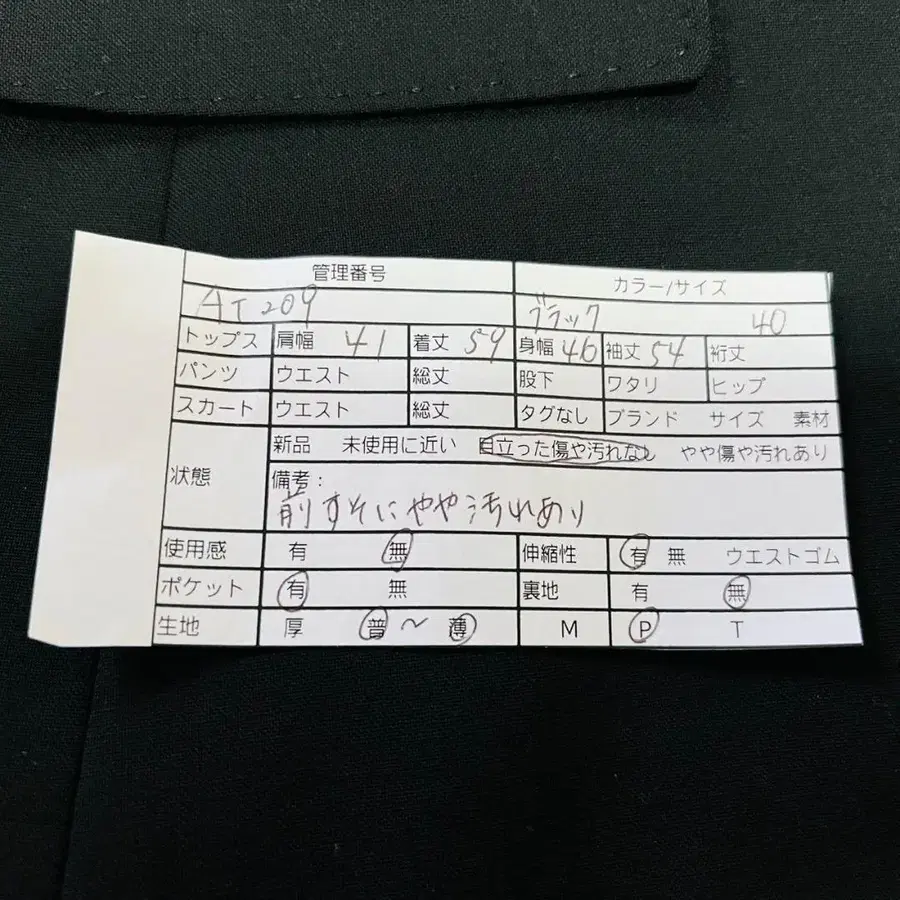 管理番号 カラー/サイズ
AT209 ブラック 40
トップス 肩幅 41 着丈 59 身幅 46 袖丈 54 裄丈
パンツ ウエスト 総丈 股下 ワタリ ヒップ
スカート ウエスト 総丈 タグなし ブランド サイズ 素材
状態 新品 未使用に近い 目立った傷や汚れなし やや傷や汚れあり
備考:
前すそにやや汚れあり
使用感 有 無 伸縮性 有 無 ウエストゴム
ポケット 有 無 裏地 有 無
生地 厚 普 〜 薄 M P T